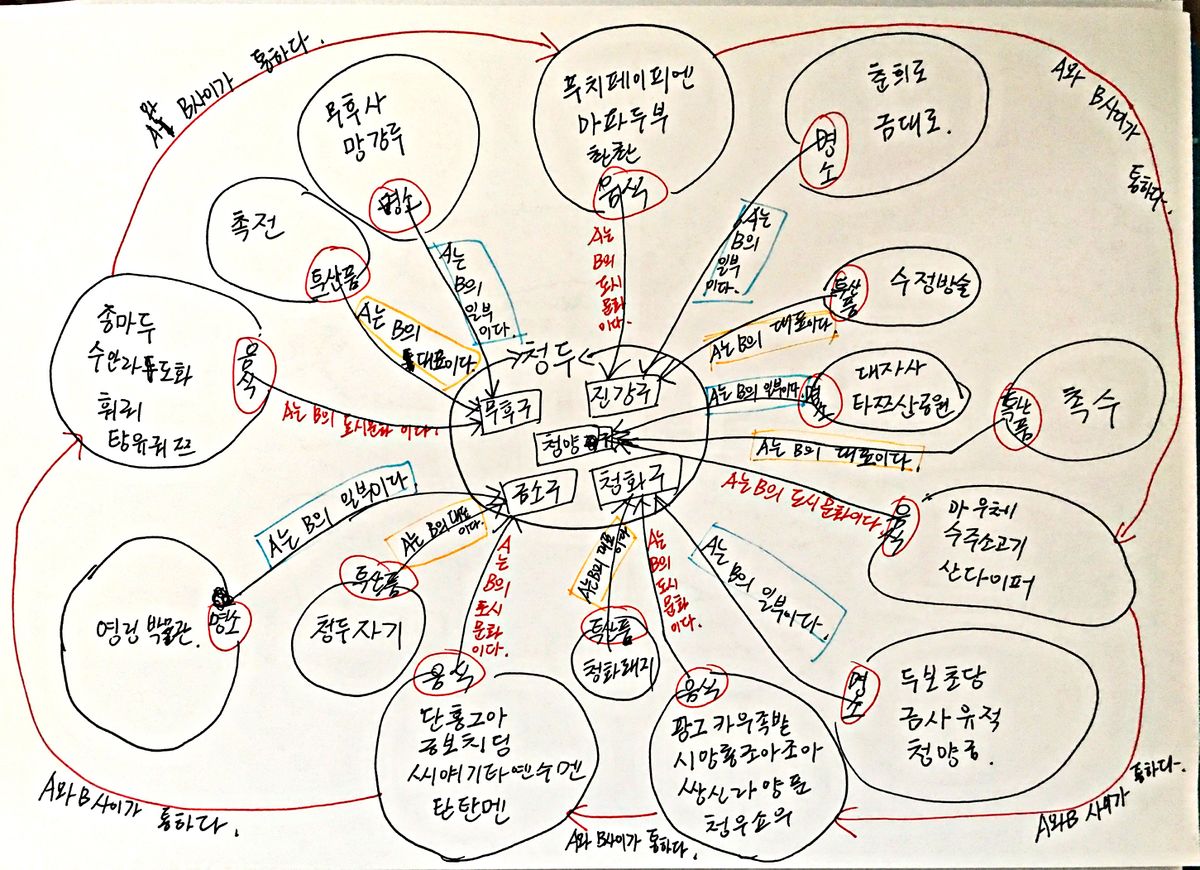 A와 B사이가 통하다.
무후사
망강루
명소
푸치페이피엔
마파두부
촨촨
음식
춘희로
금대로.
명소
A와 B사이가 통하다.
촉전
특산품
A는 B의 일부이다.
A는 B의 도시문화이다.
A는 B의 일부이다.
특산품
수정방술
종마두
수안라
훠궈
탕유궈즈
음식
A는 B의 대표이다.
A는 B의 대표이다.
청두
A는 B의 도시문화이다.
무후구
진강구
A는 B의 일부이다.
명소
대자사
타쯔산공원
특산품
촉수
청양
A는 B의 대표이다.
금소구
청화구
A는 B의 도시문화이다.
음식
마우체
수주소고기
산다이퍼
A는 B의 일부이다.
A는 B의 대표이다.
A는 B의 도시문화이다.
A는 B의 대표이다.
A는 B의 도시문화이다.
A는 B의 일부이다.
영경 박물관.
명소
특산품
청두자기
특산품
청화돼지
명소
두보초당
금사유적
청양궁.
음식
단홍그아
궁보치딤
탄탄멘
음식
청우쇼우
A와 B사이가 통하다.
A와 B사이가 통하다.
A와 B사이가 통하다.